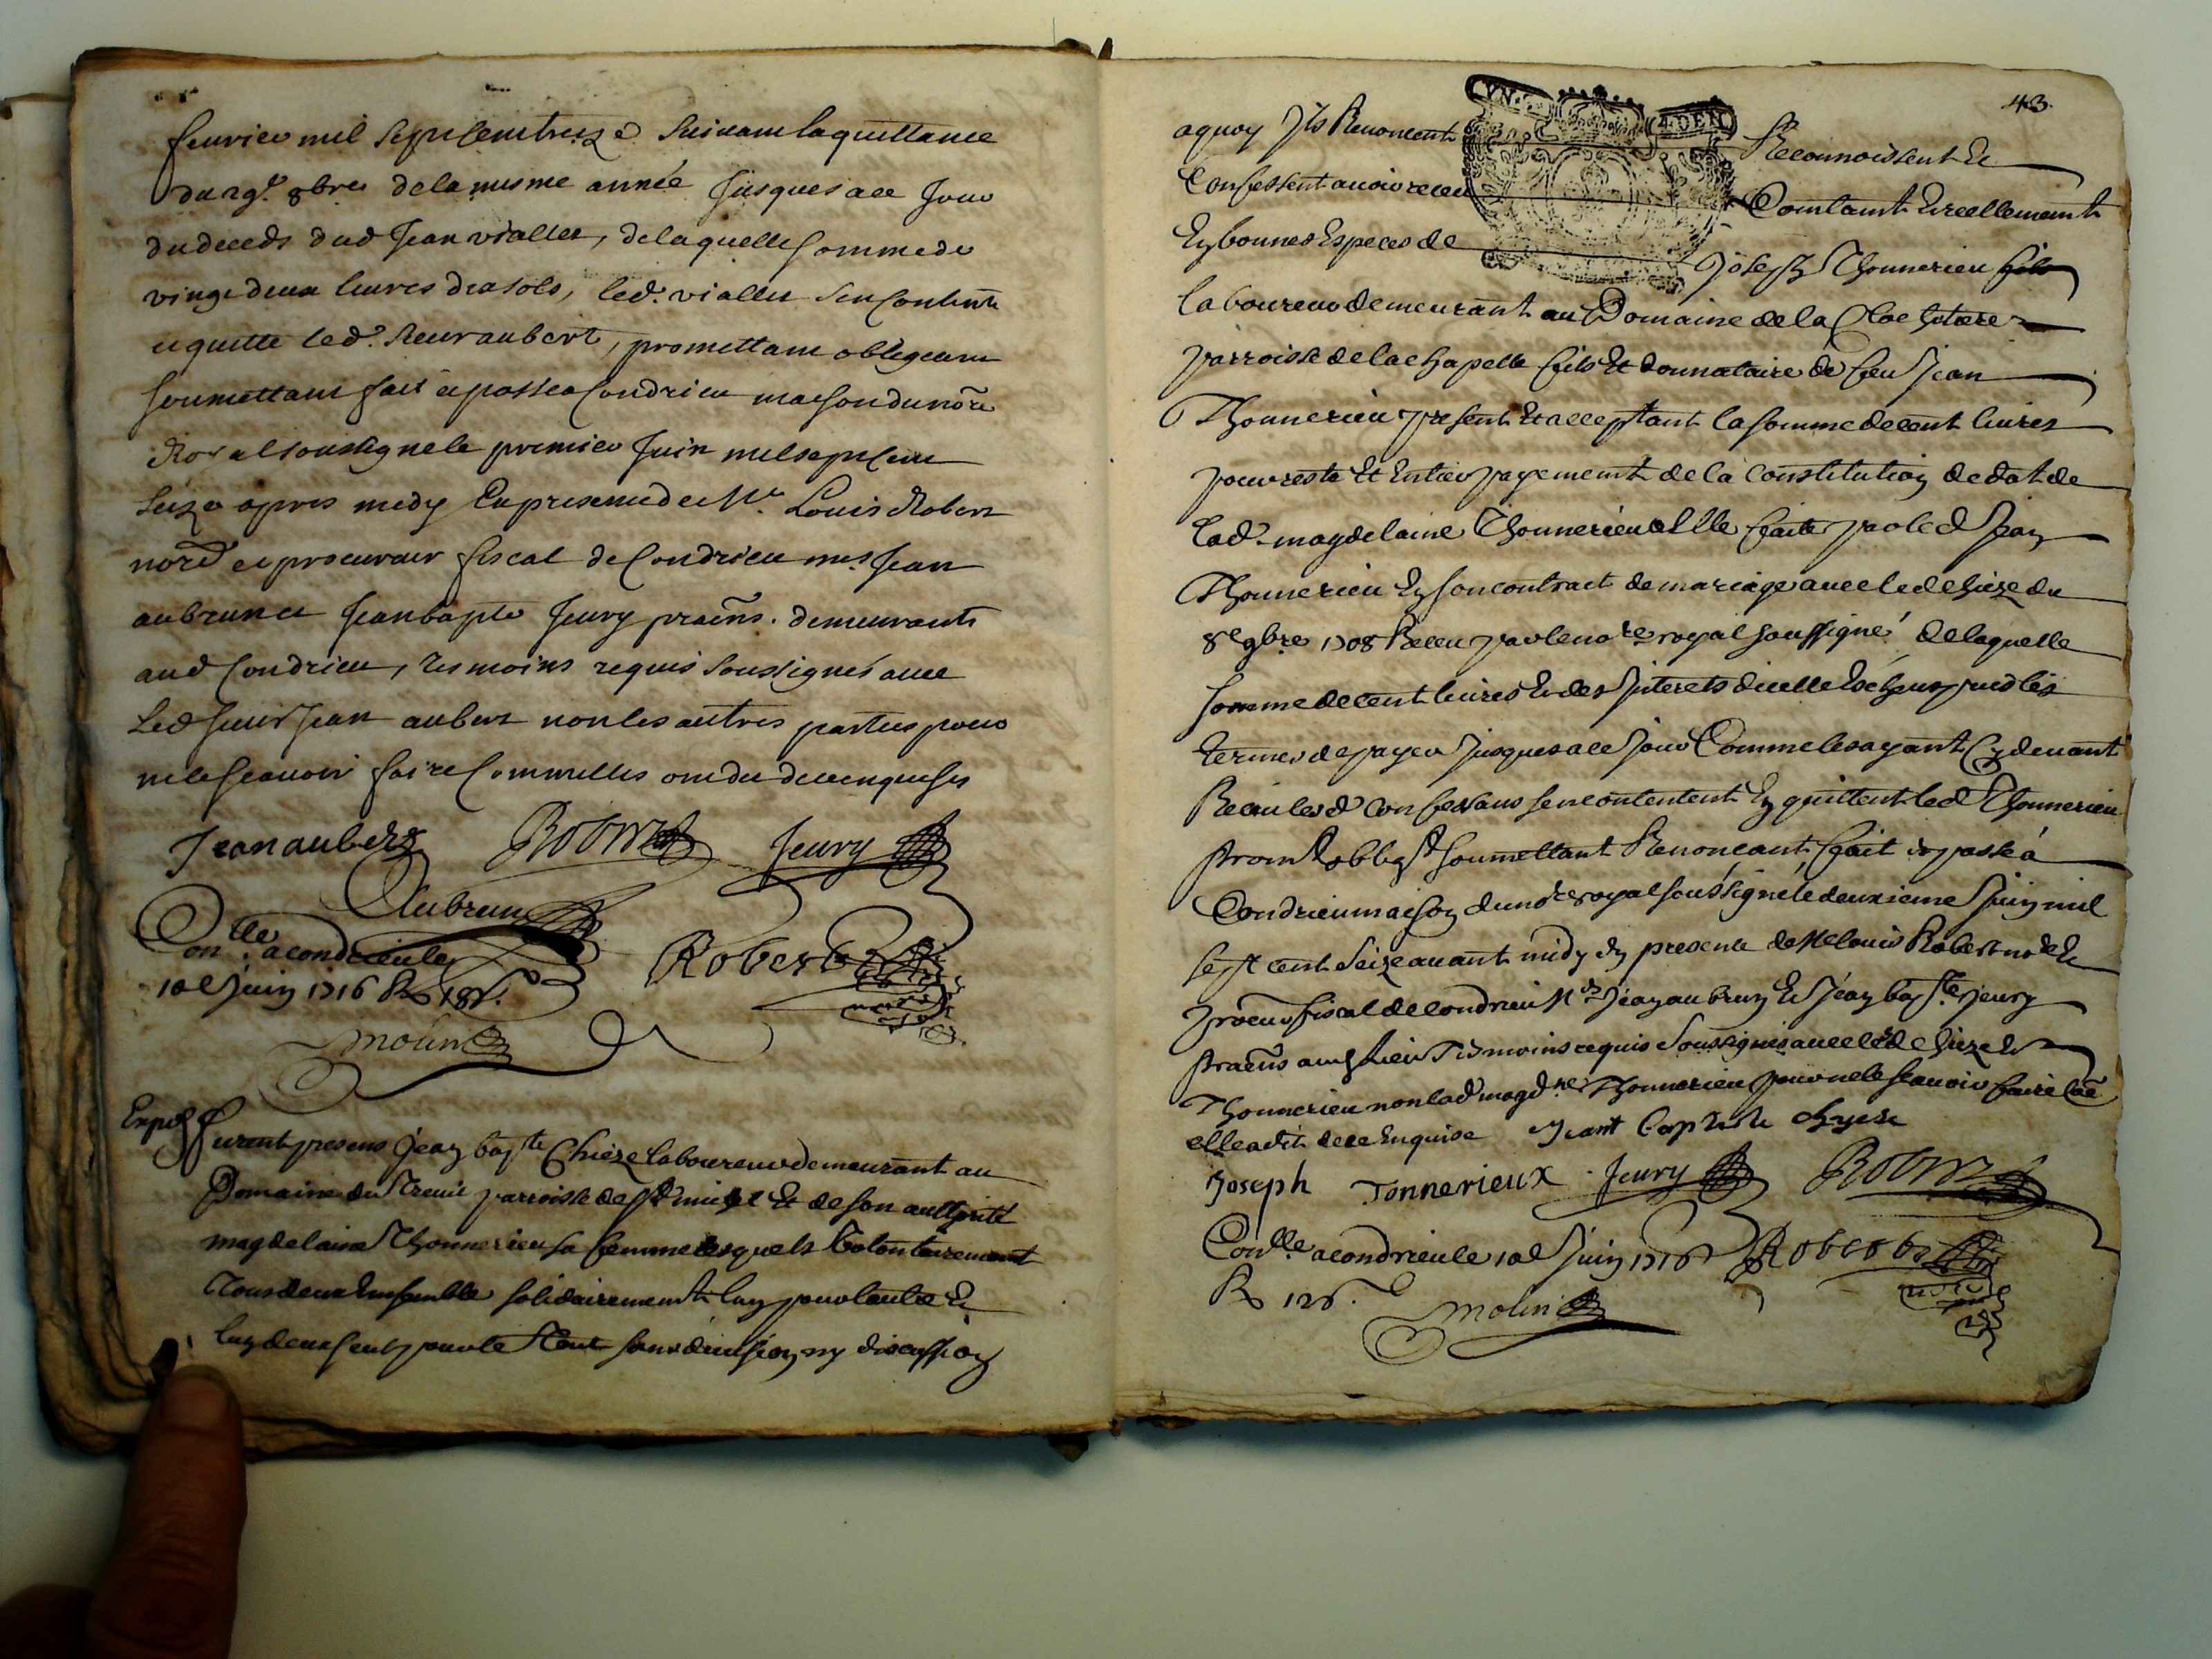 feuvrier mil sept cent treize suivant la quittance
du 29e 8bre de la mesme année jusques a ce jour
du deceds dud Jean viallet, de laquelle somme de
vingt deux livres dix sols, led. viallet sen contente
et quitte led. sieur aubert, promettant obligeant
soumettant fait et passé a Condrieu maison du nore
Royal soussigné le premier Juin mil sept cent
seize apres midy En presence de Me. Louis Robert
nore et procureur fiscal de Condrieu mes Jean
aubrun et Jean bapte Jeury praens. demeurants
aud Condrieu, tesmoins requis soussignés avec
Led sieur Jean aubert non les autres parties pour
ne le scavoir faire comme elles ont dit de ce enquises
Jean aubert Robert Jeury
Aubrun
Conlle a condrieu le
10e Juin 1716 R 18s. Robert
molin
Exped
furent presens Jean bapte Chieze laboureur demeurant au
Domaine du Treuil parroisse de St mi et de son authorité
magdelaine Thonnerieu sa femme lesquels volontairement
Tous deux Ensemble solidairement lun pour lautre et
lun deux seul pour le tout sans division ny discussion
43.
a quoy Ils Renoncent Reconnoissent Et
Confessent avoir receu Comtant Et reellement
En bonnes Especes de Joseph Thonnerieu fils
laboureur demeurant au Domaine de la
parroisse de la chapelle fils Et donnataire de feu Jean
Thonnerieu present Et acceptant la somme de cent livres
pour reste Et Entier payement de la constitution de dot de
lad. magdelaine Thonnerieu a Elle faite par led Jean
Thonnerieu En son contract de mariage avec led chieze du
8e 9bre 1708 Receu par le nore royal soussigné de laquelle
somme de cent livres Et des Interets dicelle Escheus puis les
termes de payer jusques a ce jour Comme les ayant Cy devant
Receu lesd confessans se ncontentent En quittent led Thonnerieu
promt obligt soumettant Renonçant, fait et passé á
Condrieu maison du nore royal soussigné le deuxieme Juin mil
sept cent Seize avant midy En presence de Me louis Robert nore Et
procur fiscal de condrieu Mes Jean aubrun Et Jean bapte Jeury
praens aud Lieu Tesmoins requis soussignés avec led chieze Et
Thonnerieu non lad magdne Thonnerieu pour ne le scavoir faire coe
elle a dit de ce Enquise Jeant Baptiste chyeze
Joseph Tonnerieux Jeury Robert
Conlle a condrieu le 10e Juin 1716 Robert
R 12s. molin